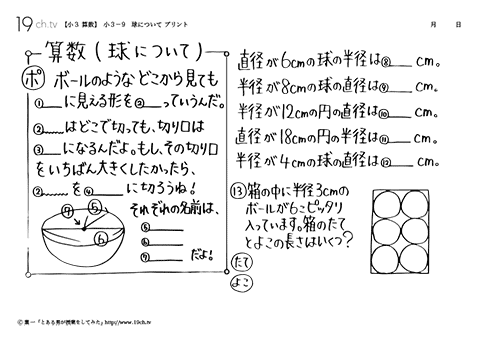 19ch.tv 【小3 算数】 小3-9 球について プリント 月 日
算数(球について)
ポ ボールのような どこから見ても
①___に見える形を②___っていうんだ。
②___はどこで切っても、切り口は
③___になるんだよ。もし、その切り口
をいちばん大きくしたかったら、
②___を④___に切ろうね!
それぞれの名前は、
⑦ ⑤
⑥
⑤___
⑥___
⑦___だよ!
直径が6cmの球の半径は⑧___cm。
半径が8cmの球の直径は⑨___cm。
半径が12cmの円の直径は⑩___cm。
直径が18cmの円の半径は⑪___cm。
半径が4cmの球の直径は⑫___cm。
⑬箱の中に半径3cmの
ボールが6こピッタリ
入っています。箱のたて
とよこの長さはいくつ?
たて
よこ
© 葉一「とある男が授業をしてみた」http://www.19ch.tv